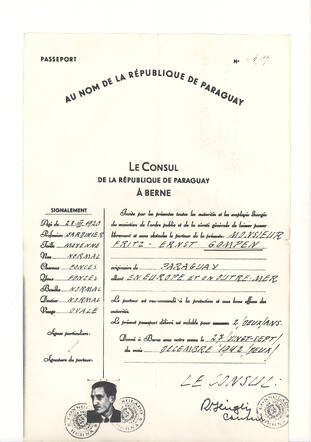 PASSEPORT
N°
AU NOM DE LA RÉPUBLIQUE DE PARAGUAY
LE CONSUL
DE LA RÉPUBLIQUE DE PARAGUAY
À BERNE
SIGNALEMENT
Profession JARDINIER
Taille MOYENNE
Nez NORMAL
Cheveux FONCÉS
Yeux FONCÉS
Bouche NORMAL
Menton NORMAL
Visage OVALE
Signes particuliers:
Signature du porteur:
Invite par les présentes toutes les autorités et les employés chargés
du maintien de l'ordre public et de la sûreté générale de laisser passer
librement et sans obstacle le porteur de la présente: MONSIEUR
FRITZ - ERNST GOMPEN
originaire de PARAGUAY
allant EN EUROPE ET EN OUTRE-MER
Le porteur est recommandé à la protection et aux bons offices des
autorités.
Le présent passeport délivré est valable pour 2/DEUX/ANS.
Donné à Berne sous notre sceau le 27/VINGT-SEPT/
du mois DÉCEMBRE 1942
LE CONSUL: